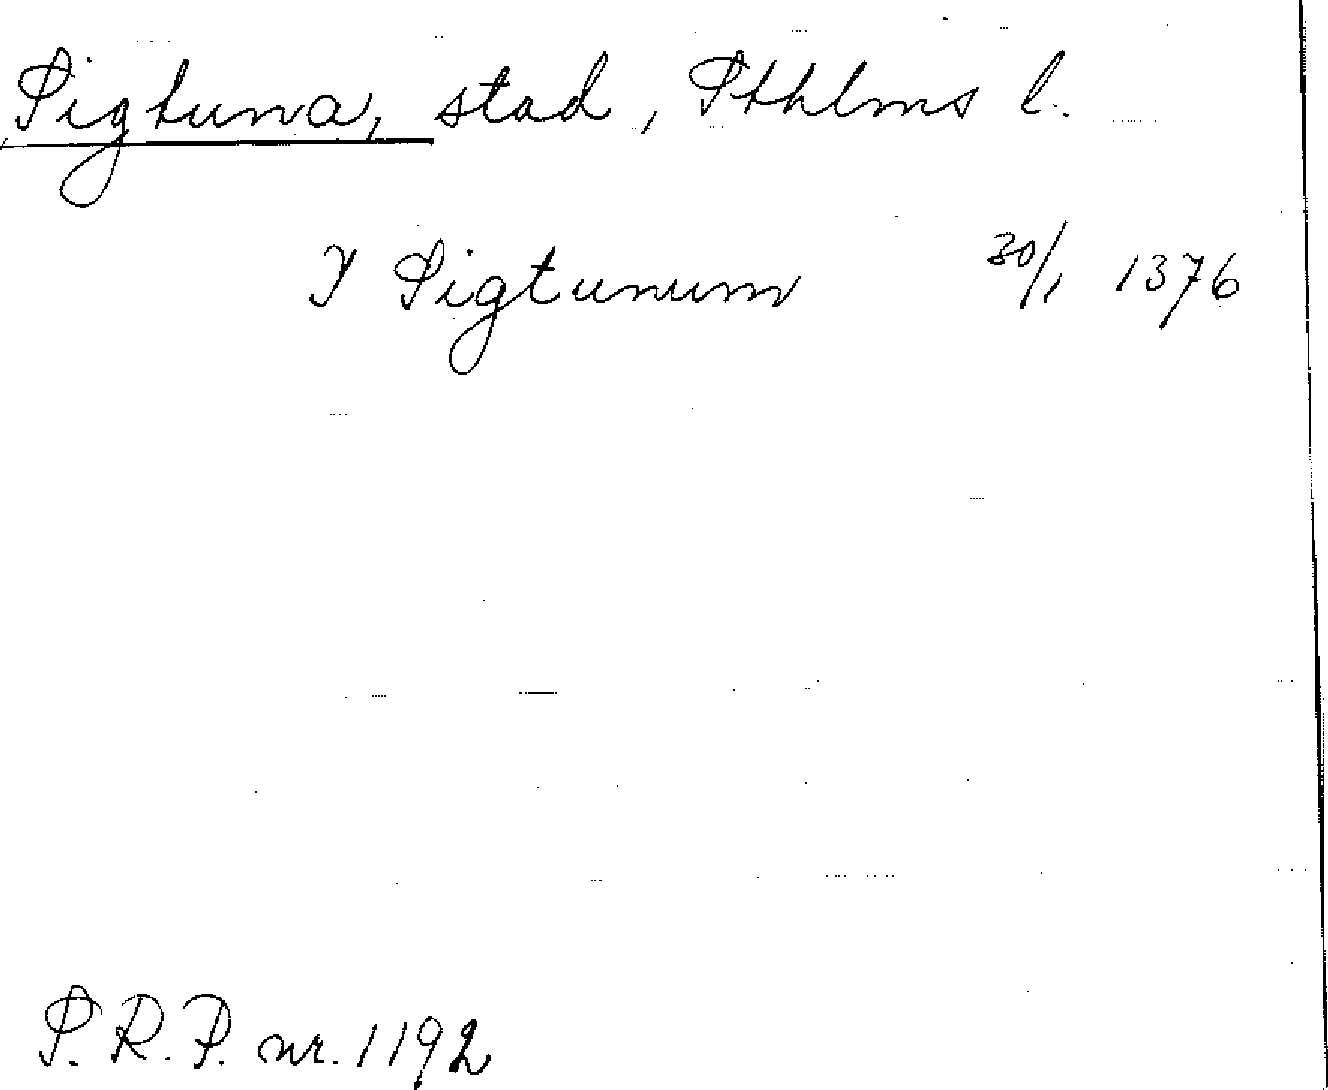 Sigtuna, stad, Sthlms l.
I Sigtunum 30/1 1376
S.R.P. nr. 1192